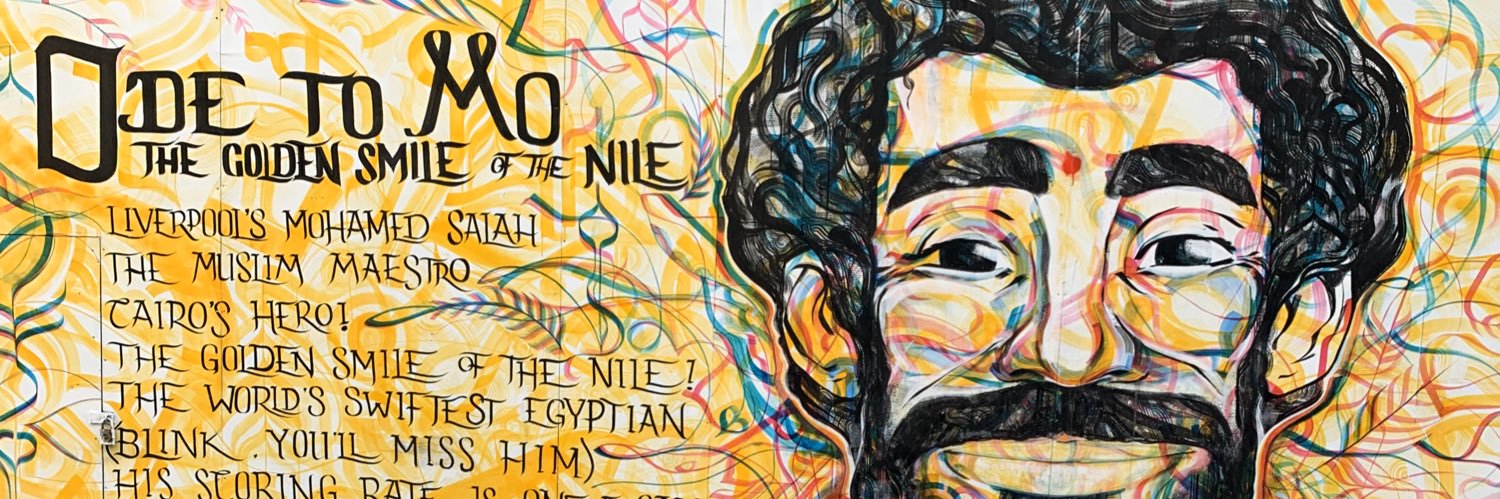 ODE TO MO
THE GOLDEN SMILE OF THE NILE
LIVERPOOL'S MOHAMED SALAH
THE MUSLIM MAESTRO
CAIRO'S HERO!
THE GOLDEN SMILE OF THE NILE!
THE WORLD'S SWIFTEST EGYPTIAN
(BLINK, YOU'LL MISS HIM)
HIS SCORING RATE IS